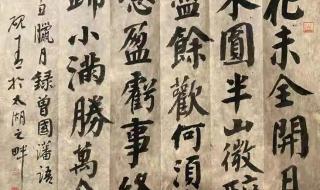 花未全開月
未圓半山微醉
盡餘歡何須
慮盈虧事終
歸小滿勝萬全
臘月録曾國藩語
於太湖之畔